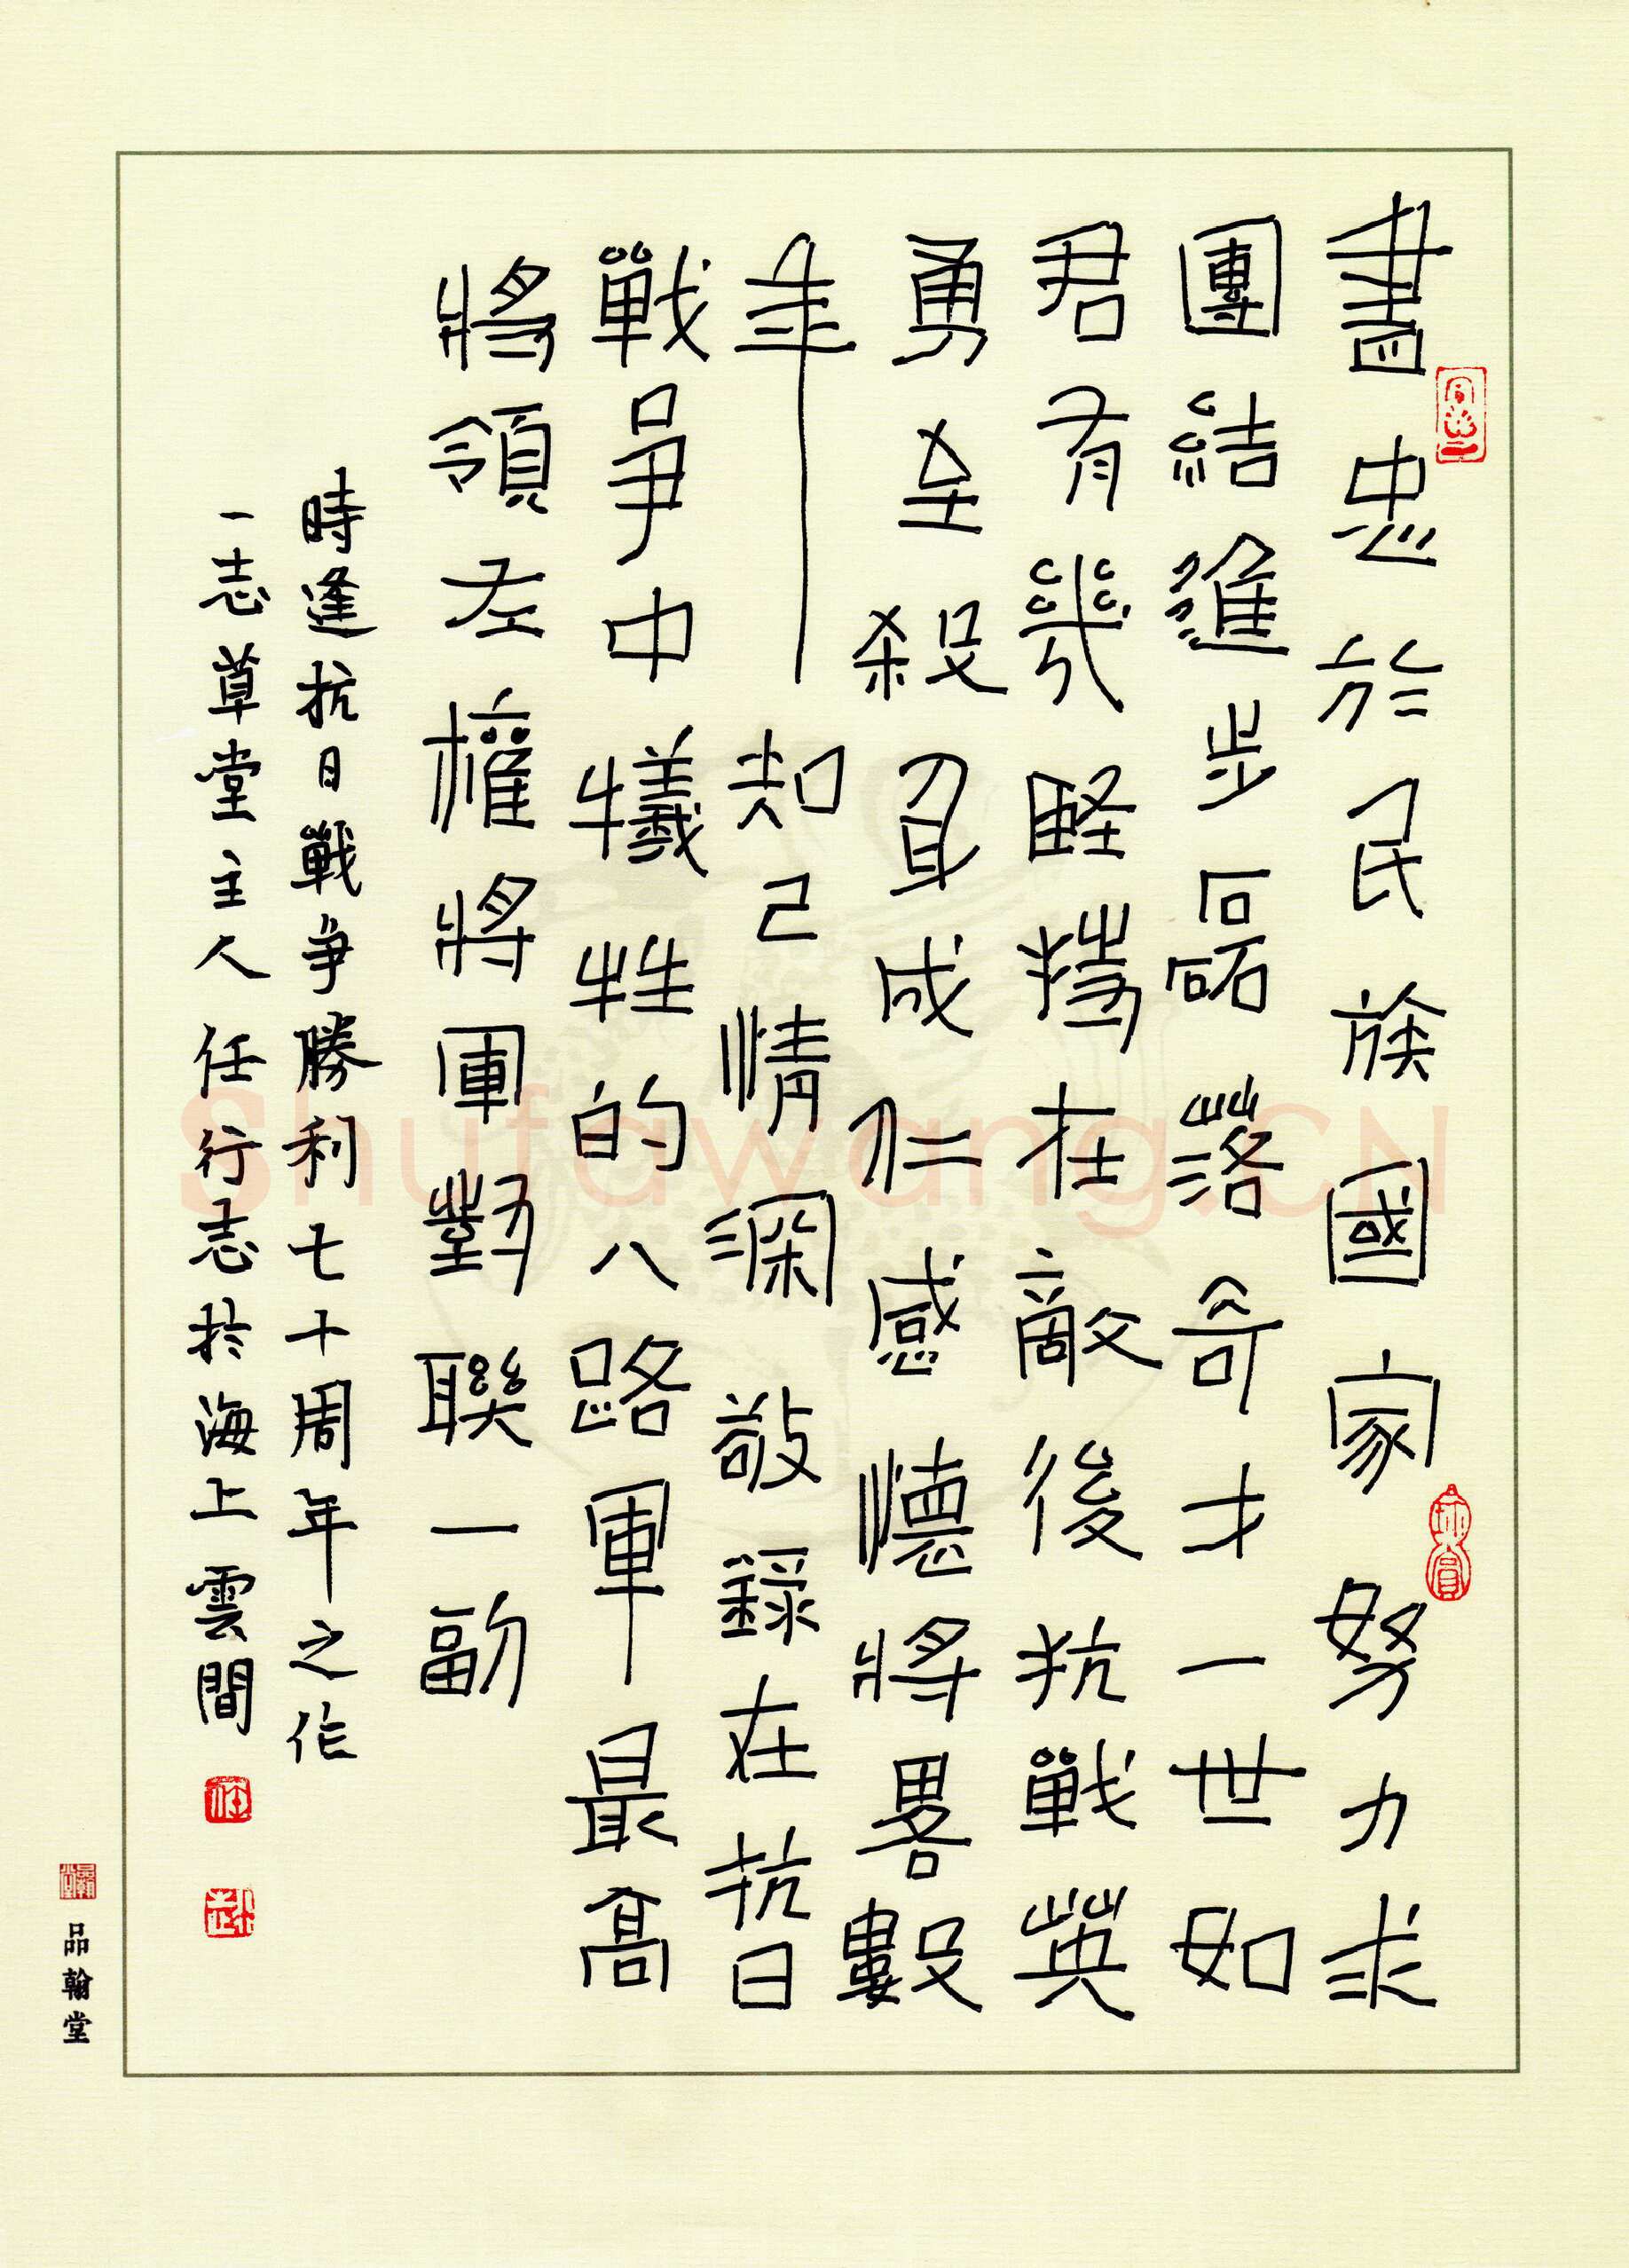 盡忠於民族國家努力求
團結進步磊落奇才一世如
君有幾堅持在敵後抗戰英
勇至殺身成仁感懷將畧數
年知己情深敬錄在抗日
戰爭中犧牲的八路軍最高
將領左權將軍對聯一副
時逢抗日戰爭勝利七十周年之作
一志草堂主人任行志於海上雲間
品翰堂
Shufawang.CN